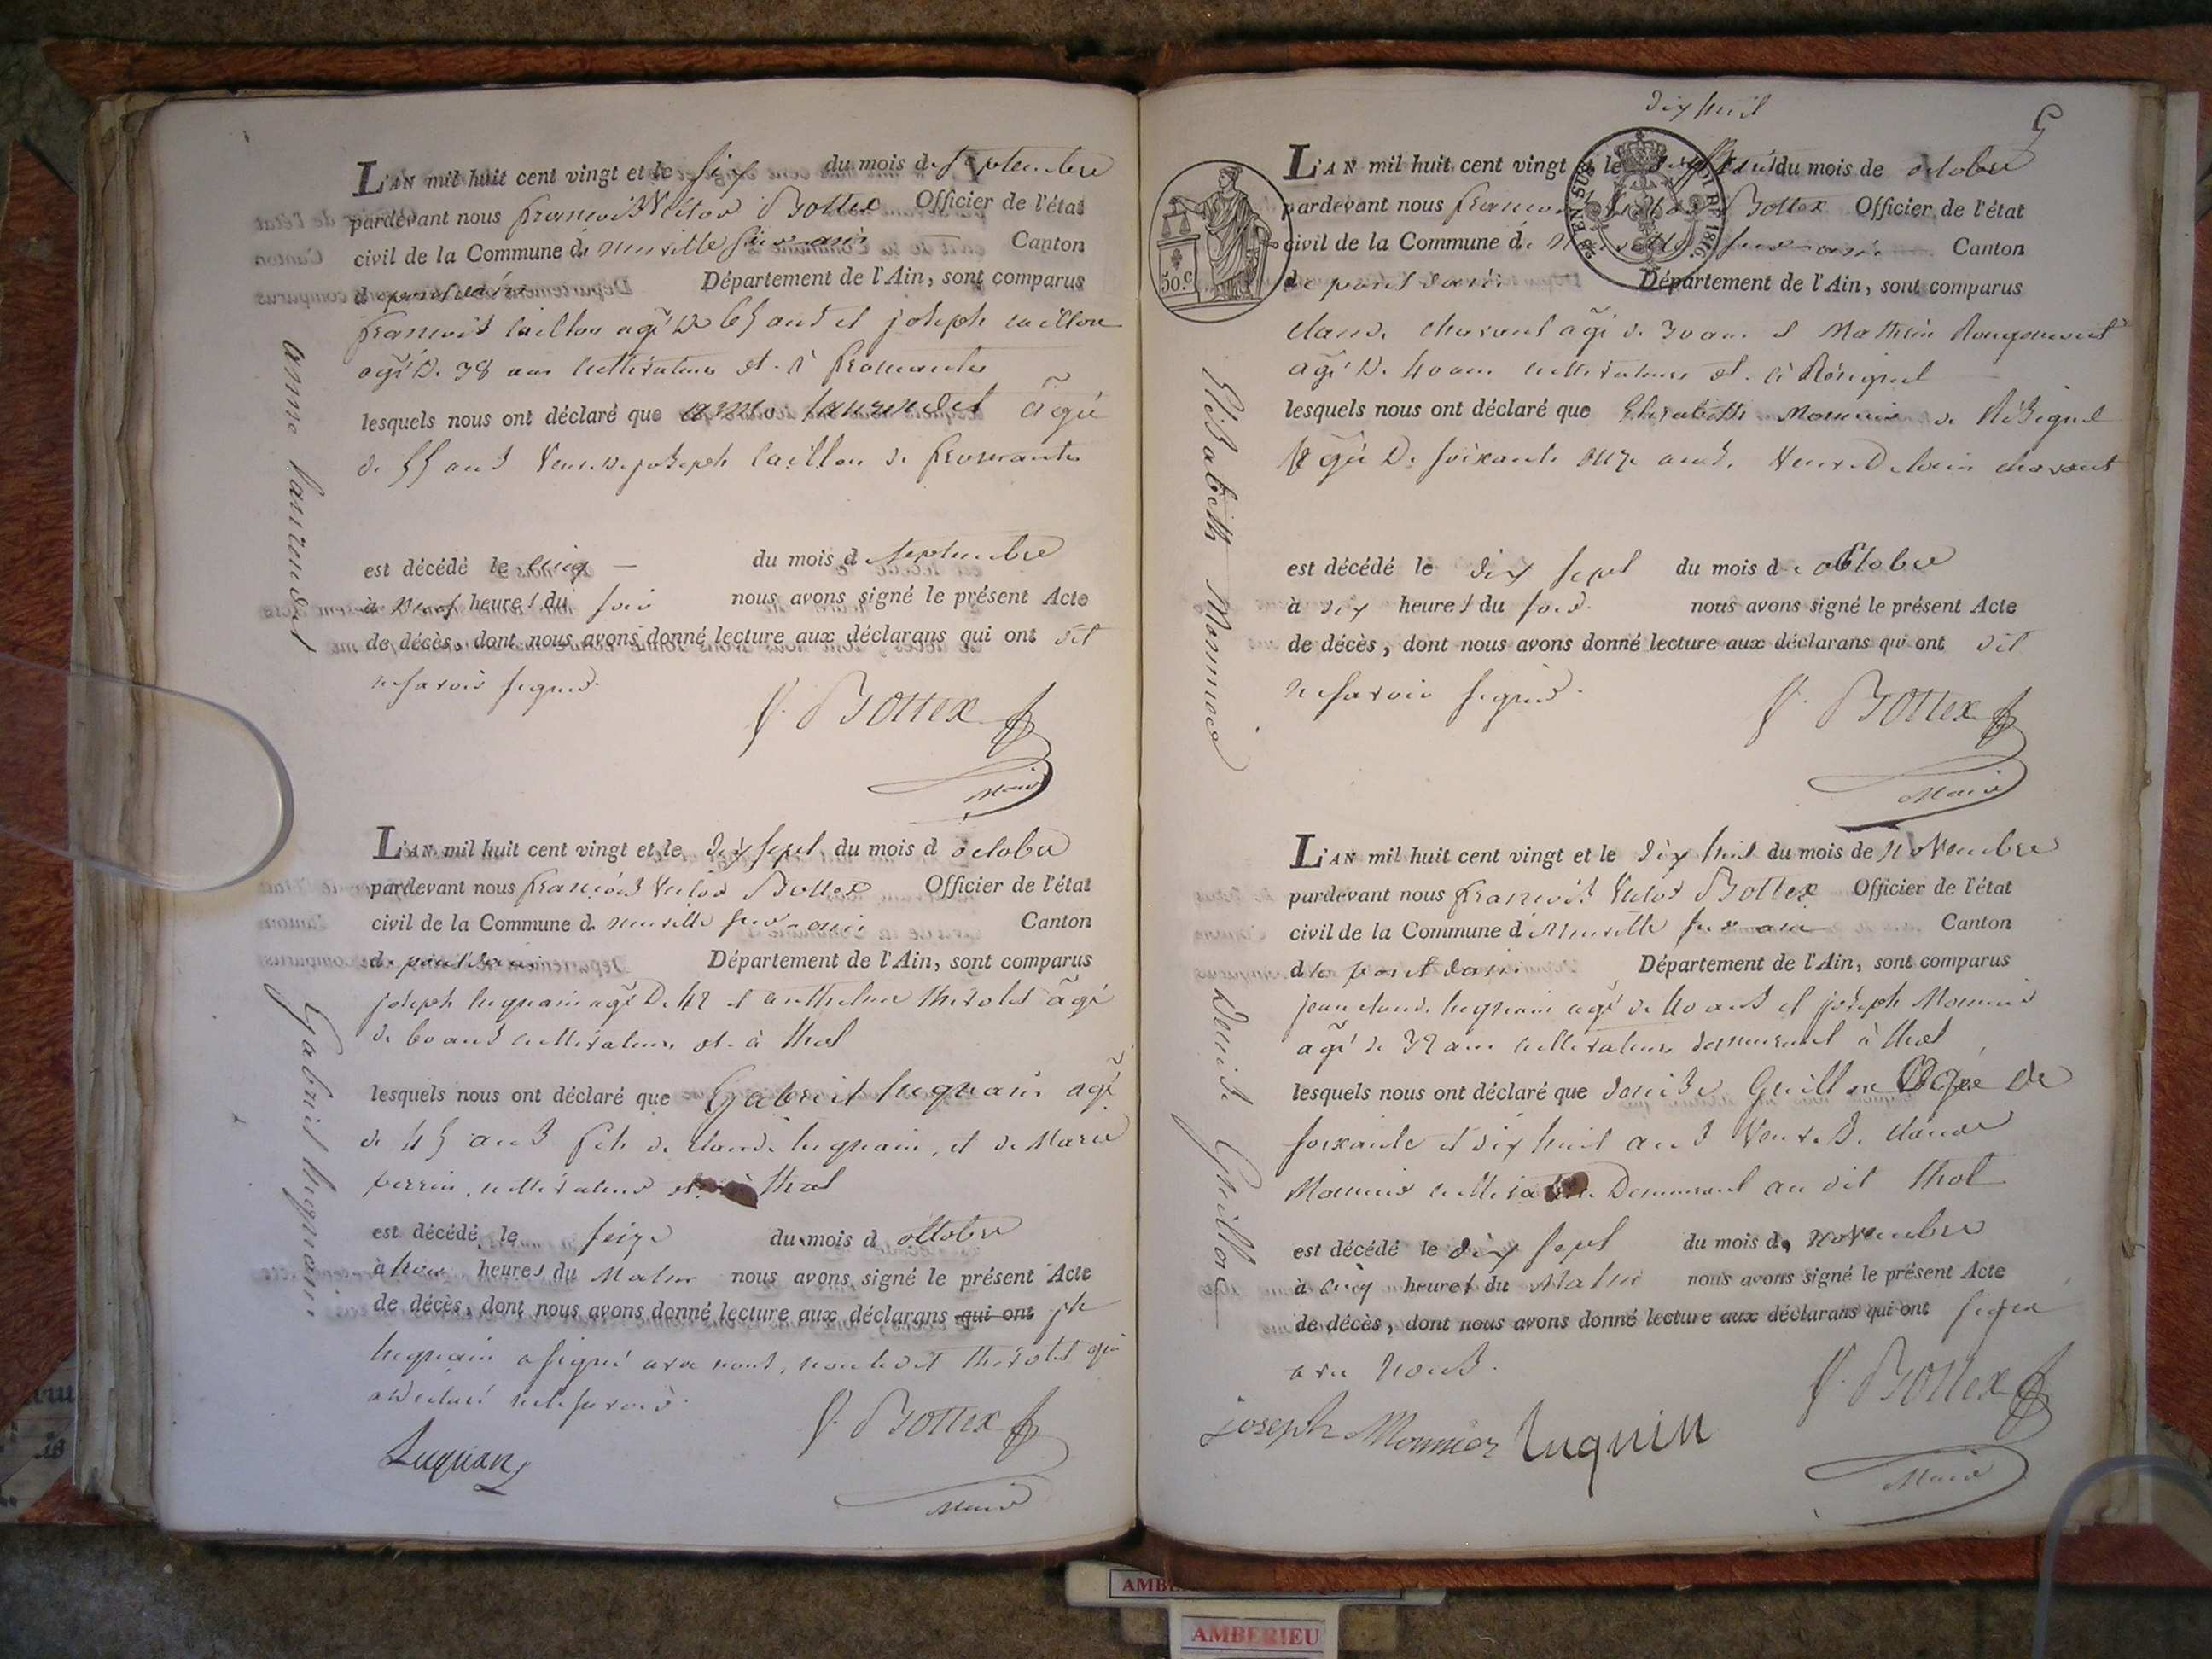 L'AN mil huit cent vingt et le six du mois de septembre
pardevant nous françois Victor Bottex Officier de l'état
civil de la Commune de neuville sur ain Canton
de pont dain Département de l'Ain, sont comparus
françois caillon agé de 65 ans et joseph caillon
agé de 38 ans cultivateurs et. à fromentes
lesquels nous ont déclaré que anne laurendet agée
de 55 ans Veuve de joseph caillon de fromentes
est décédé le cinq du mois de septembre
à neuf heures du soir nous avons signé le présent Acte
de décès, dont nous avons donné lecture aux déclarans qui ont dit
ne savoir signer.
V. Bottex
Maire
anne laurendet
L'AN mil huit cent vingt et le dix sept du mois d octobre
pardevant nous françois Victor Bottex Officier de l'état
civil de la Commune de neuville sur ain Canton
de pont dain Département de l'Ain, sont comparus
joseph luquain agé de 42 et anthelme thérolet agé
de 60 ans cultivateurs et. à thol
lesquels nous ont déclaré que Gabriel luquain agé
de 45 ans fils de claude luquain, et de Marie
perrin, cultivateur et. à thol
est décédé le seize du mois d octobre
à trois heures du Matin nous avons signé le présent Acte
de décès, dont nous avons donné lecture aux déclarans qui ont ph
luquain a signé avec nous, non ledit thérolet qui
a déclaré ne le savoir.
V. Bottex
Luquain
Maire
Gabriel luquain
dix huit
5
L'AN mil huit cent vingt et le dix huit du mois de octobre
pardevant nous françois Victor Bottex Officier de l'état
civil de la Commune de Neuville sur ain Canton
de pont dain Département de l'Ain, sont comparus
50 c
EN SUS
1816.
claude charant agé de 30 ans et Mathieu Rougemont
agé de 40 ans cultivateurs et. à Résignel
lesquels nous ont déclaré que Elisabeth Monnier de Résignel
agée de soixante onze ans, Veuve de charant
est décédé le dix sept du mois de octobre
à dix heures du soir. nous avons signé le présent Acte
de décès, dont nous avons donné lecture aux déclarans qui ont dit
ne savoir signer.
V. Bottex
Maire
Elisabeth Monnier
L'AN mil huit cent vingt et le dix huit du mois de novembre
pardevant nous françois Victor Bottex Officier de l'état
civil de la Commune de Neuville sur ain Canton
de pont dain Département de l'Ain, sont comparus
jean claude luquain agé de 40 ans et joseph Monnier
agé de 32 ans cultivateurs demeurant à thol
lesquels nous ont déclaré que denise Guillon Agée de
soixante et dix huit ans Veuve de claude
Monnier cultivateur Demeurant au dit thol
est décédé le dix sept du mois de novembre
à cinq heures du Matin nous avons signé le présent Acte
de décès, dont nous avons donné lecture aux déclarans qui ont signé
avec nous.
V. Bottex
joseph Monnier luquin
Maire
Denise Guillon
AMBERIEU